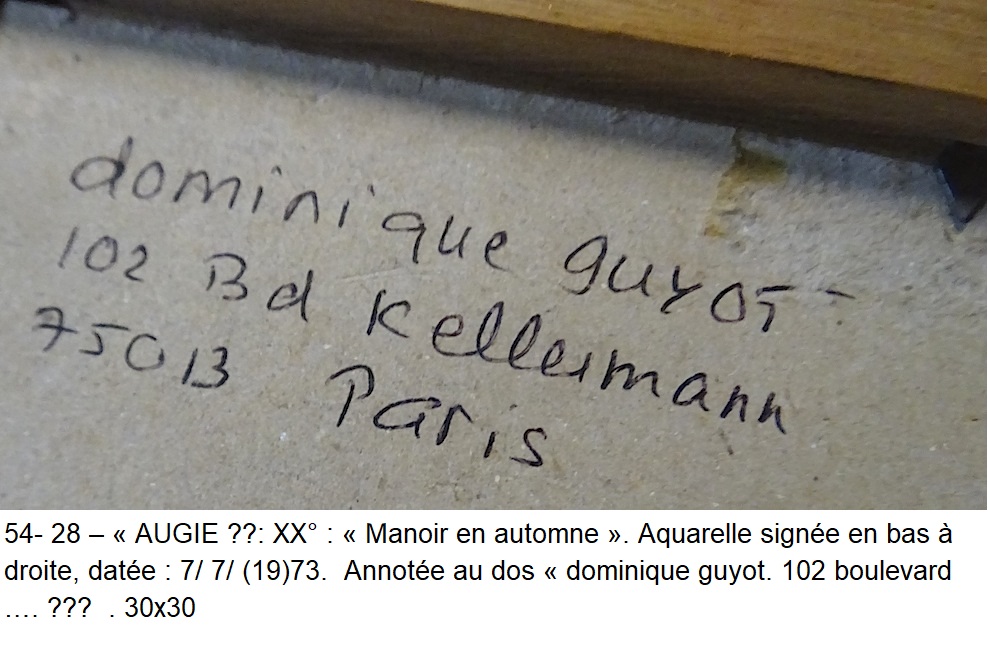 dominique guyot
102 Bd Kellermann
75013 Paris
54- 28 – « AUGIE ??: XX° : « Manoir en automne ». Aquarelle signée en bas à
droite, datée : 7/ 7/ (19)73. Annotée au dos « dominique guyot. 102 boulevard
.… ??? . 30x30